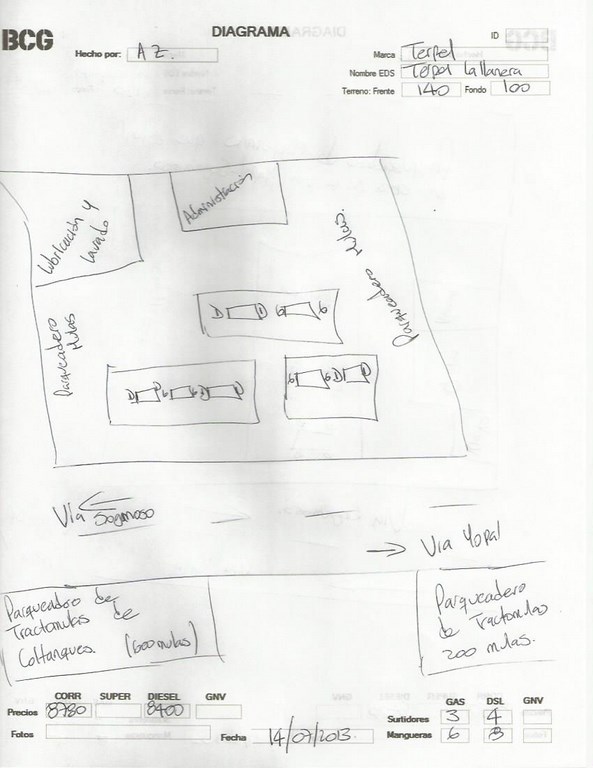 BCG
DIAGRAMA
ID
Hecho por: AZ.
Marca Terpel
Nombre EDS Terpel La llanera
Terreno: Frente 140 Fondo 100
Lubricación y
lavado
Administración
Parqueadero
Mulas
Parqueadero Mulas.
D D G G
D D G G D D
G G D D
Vía Sogamoso
Via Yopal
Parqueadero de
Tractomulas de
Coltanques. (600 mulas)
Parqueadero
de Tractomulas
200 mulas.
CORR SUPER DIESEL GNV
Precios 8780 8400
Fotos
Fecha 14/07/2013
GAS DSL GNV
Surtidores 3 4
Mangueras 6 8